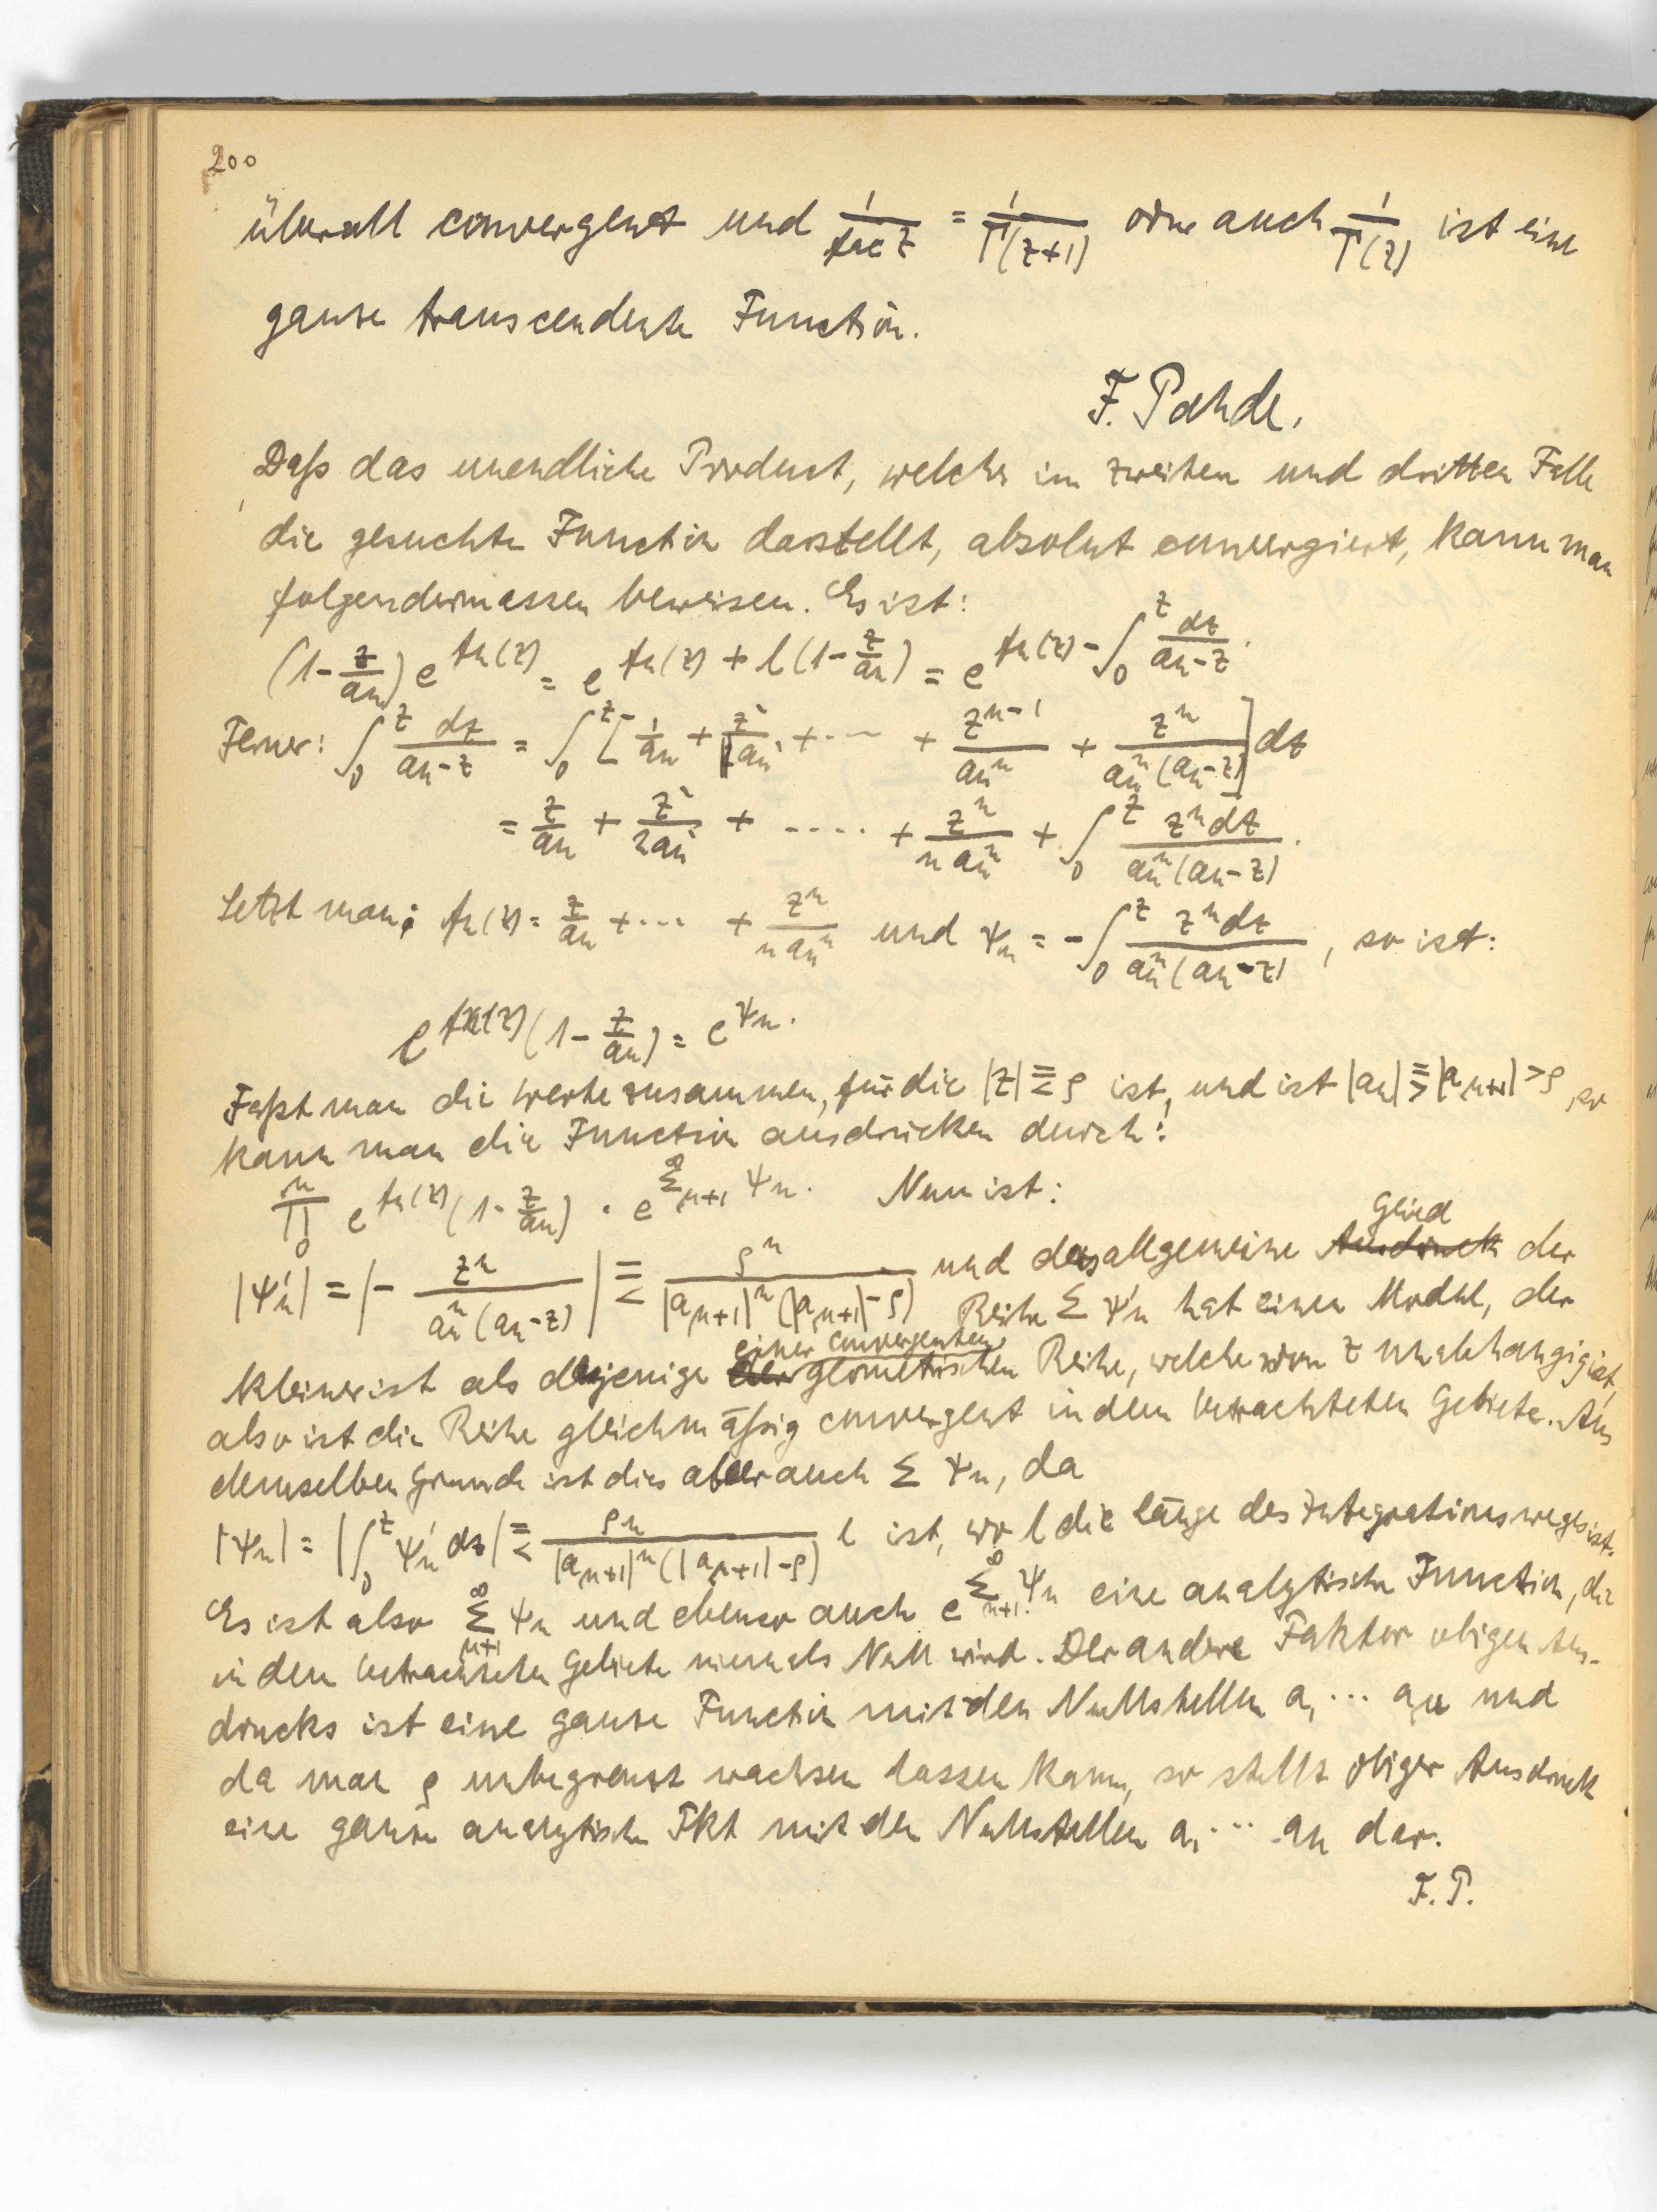 200
überall convergent und 1/fac z = 1/Γ(z+1) oder auch 1/Γ(z) ist eine
ganze transcendente Function.
F. Pahde.
Daß das unendliche Product, welches im zweiten und dritten Falle
die gesuchte Function darstellt, absolut convergiert, kann man
folgendermassen beweisen. Es ist:
(1 - z/aₙ) e^{fₙ(z)} = e^{fₙ(z) + l(1 - z/aₙ)} = e^{fₙ(z) - ∫₀^z dz/(aₙ - z)}.
Ferner: ∫₀^z dz/(aₙ - z) = ∫₀^z [1/aₙ + z/aₙ² + ···· + z^{n-1}/aₙⁿ + zⁿ/(aₙⁿ(aₙ - z))] dz
= z/aₙ + z²/(2aₙ²) + ····· + zⁿ/(n aₙⁿ) + ∫₀^z zⁿ dz/(aₙⁿ(aₙ - z)).
Setzt man: fₙ(z) = z/aₙ + ··· + zⁿ/(n aₙⁿ) und ψₙ = -∫₀^z zⁿ dz/(aₙⁿ(aₙ - z)), so ist:
e^{fₙ(z)} (1 - z/aₙ) = e^{ψₙ}.
Faßt man die Werte zusammen, für die |z| ≦ ρ ist, und ist |aₙ| ≧ |a_{μ+1}| > ρ, so
kann man die Function ausdrücken durch:
∏₀^μ e^{fₙ(z)} (1 - z/aₙ) · e^{Σ_{μ+1}^∞ ψₙ}. Nun ist:
|ψₙ'| = |- zⁿ/(aₙⁿ(aₙ - z))| ≦ ρⁿ/(|a_{μ+1}|ⁿ(|a_{μ+1}| - ρ)) und das allgemeine Ausdruck Glied der
Reihe Σ ψₙ' hat einen Modul, der
kleiner ist als dasjenige der einer convergenten geometrischen Reihe, welche von z unabhängig ist,
also ist die Reihe gleichmäßig convergent in dem betrachteten Gebiete. Aus
demselben Grunde ist dies aber auch Σ ψₙ, da
|ψₙ| = |∫₀^z ψₙ' dz| ≦ ρⁿ/(|a_{μ+1}|ⁿ(|a_{μ+1}| - ρ)) l ist, wo l die länge des Integrationsweges ist.
Es ist also Σ_{μ+1}^∞ ψₙ und ebenso auch e^{Σ_{μ+1}^∞ ψₙ} eine analytische Function, die
in dem betrachteten Gebiete niemals Null wird. Der andere Faktor obigen Aus-
drucks ist eine ganze Function mit den Nullstellen a₁ ··· a_μ und
da man ρ unbegrenzt wachsen lassen kann, so stellt obiger Ausdruck
eine ganze analytische Fkt mit den Nullstellen a₁ ··· aₙ dar.
F. P.